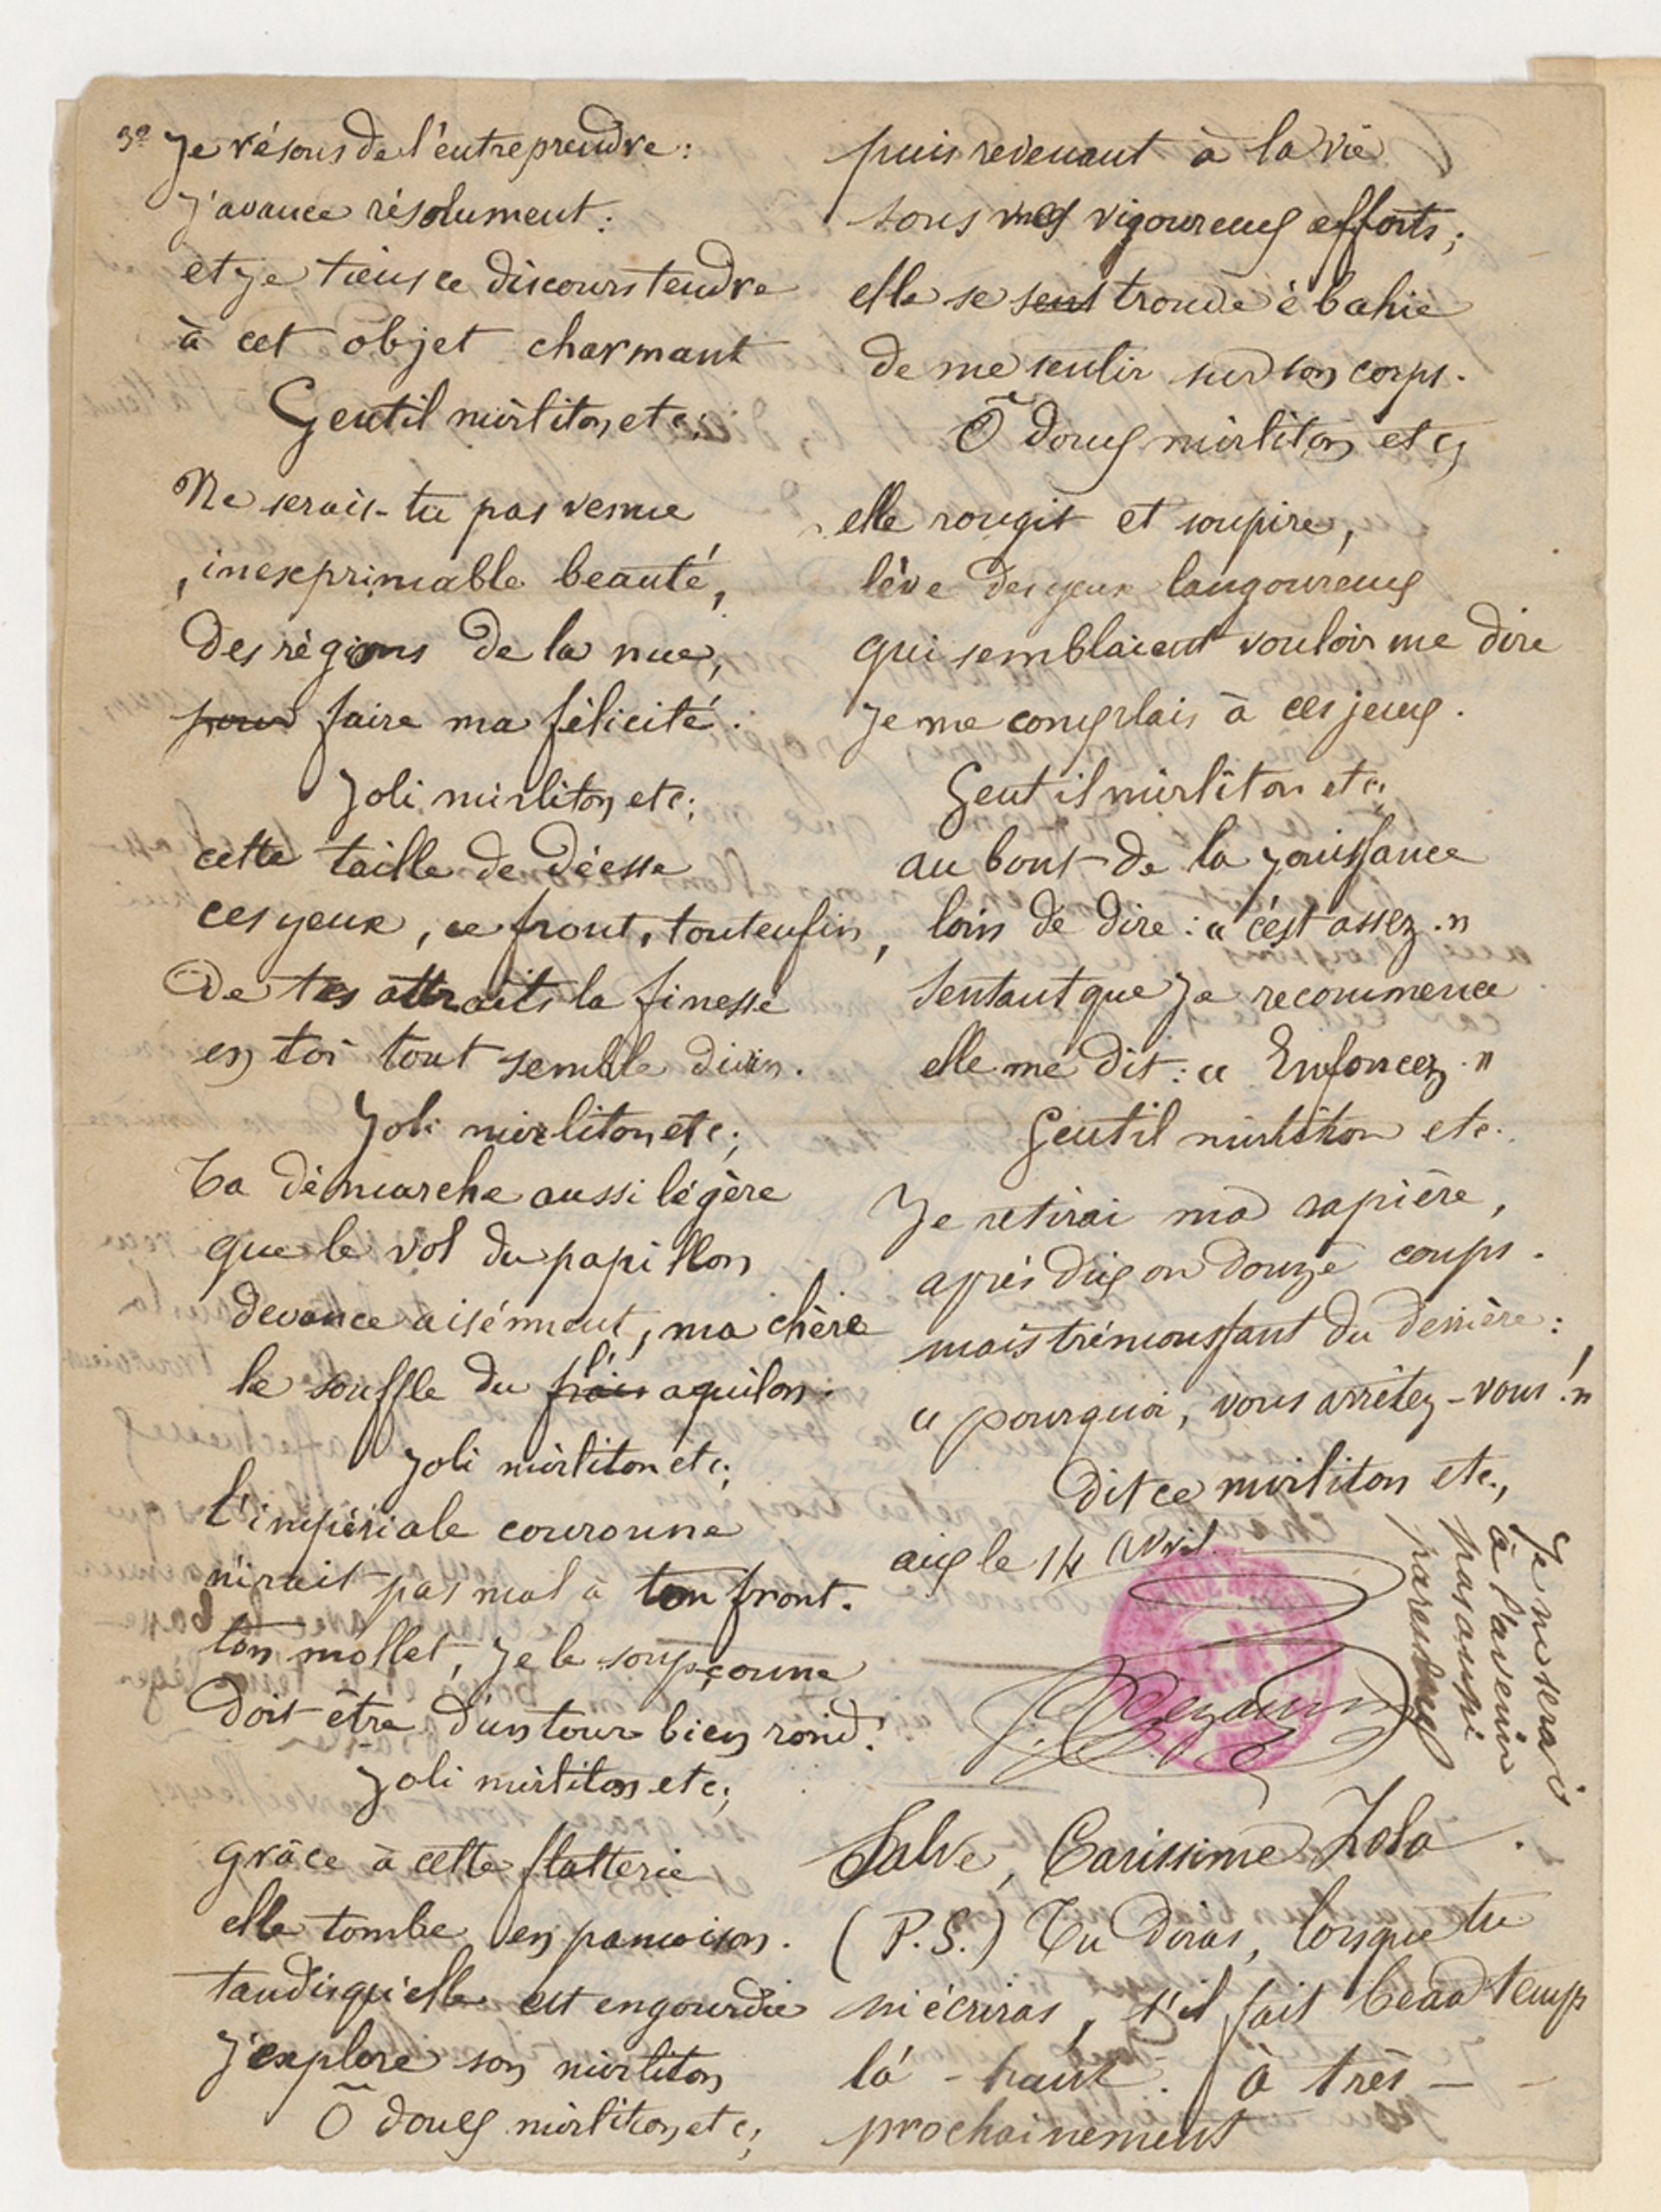 3º Je résous de l'entreprendre:
J'avance résolument:
et je tiens ce discours tendre
à cet objet charmant
Gentil mirliton, etc;
Ne serais-tu pas venue,
inexprimable beauté,
Des régions de la nue,
pour faire ma félicité.
Joli mirliton, etc;
cette taille de déesse
ces yeux, ce front, tout enfin,
De tes attraits la finesse
en toi tout semble divin.
Joli mirliton etc;
Ta démarche aussi légère
que le vol du papillon
devance aisément, ma chère
le souffle du aquilon.
Joli mirliton etc;
l'impériale couronne
n'irait pas mal à ton front.
ton mollet, je le soupçonne
Doit être d'un tour bien rond.
Joli mirliton etc;
Grâce à cette flatterie
elle tombe en pamoison.
tandis qu'elle est engourdie
J'explore son mirliton
Ô doux mirliton etc;
puis revenant à la vie
sous mes vigoureux efforts;
elle se sent trouve ébahie
de me sentir sur son corps.
Ô doux mirliton etc;
elle rougit et soupire,
lève des yeux langoureux
qui semblaient vouloir me dire
Je me complais à ces jeux.
Gentil mirliton etc;
au bout de la jouissance
loin de dire: « c'est assez. »
Sentant que je recommence
elle me dit: « Enfoncez. »
Gentil mirliton etc.
Je retirai ma rapière,
après dix ou douze coups.
mais trémoussant du derrière:
« pourquoi, vous arrêtez-vous! »
Dit ce mirliton etc.,
aix le 14 Avril.
P. Cézanne
Je ne serai
à l'avenir
pas aussi
paresseux
Salve, Carissime Zola.
(P.S.) Tu diras, lorsque tu
m'écriras, s'il fait beau temps
là-haut. à très-
prochainement